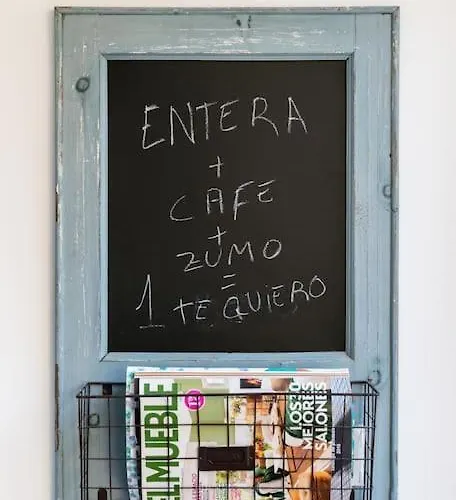 ENTERA
+
CAFE
+
ZUMO
=
1 TE QUIERO
ELMUEBLE
LOS 30
MEJORES
SALONES